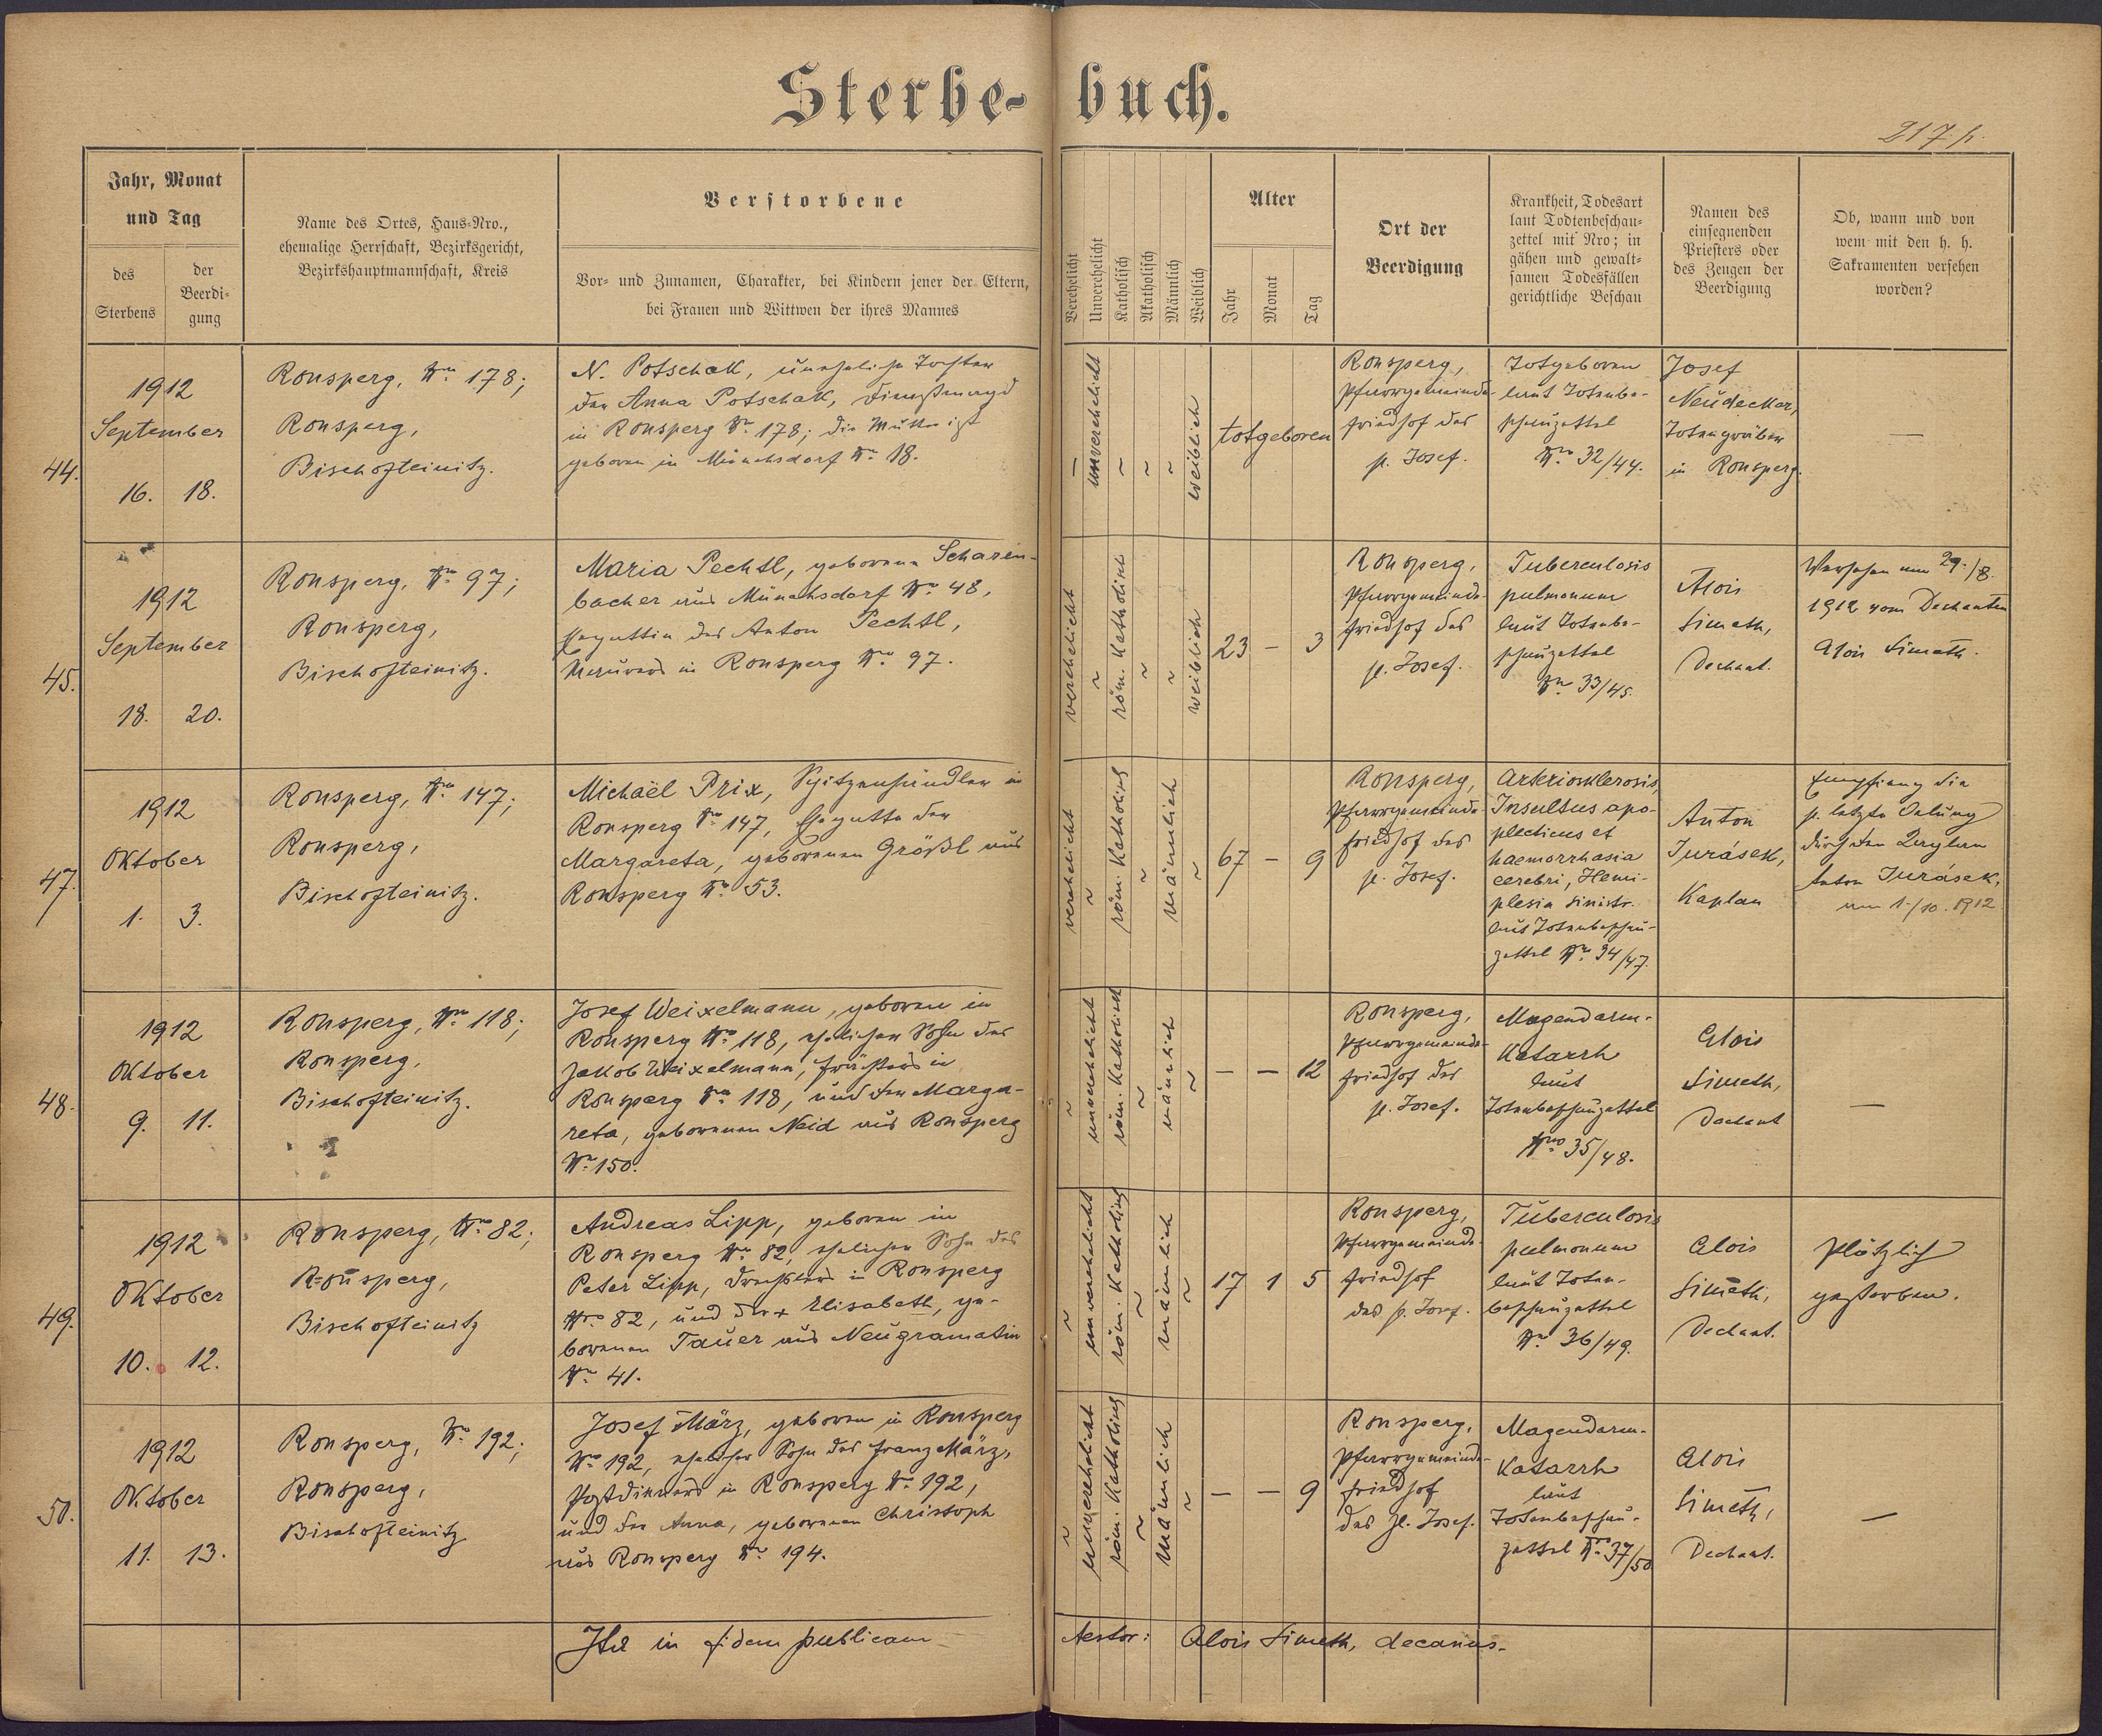 Sterbe-buch.
217 p.
Jahr, Monat
und Tag
des
Sterbens
der
Beerdi-
gung
Name des Ortes, Haus-Nro.,
ehemalige Herrschaft, Bezirksgericht,
Bezirkshauptmannschaft, Kreis
Verstorbene
Vor- und Zunamen, Charakter, bei Kindern jener der Eltern,
bei Frauen und Wittwen der ihres Mannes
Verehelicht
Unverehelicht
Katholisch
Akatholisch
Männlich
Weiblich
Alter
Jahr
Monat
Tag
Ort der
Beerdigung
Krankheit, Todesart
laut Todtenbeschau-
zettel mit Nro; in
gähen und gewalt-
samen Todesfällen
gerichtliche Beschau
Namen des
einsegnenden
Priesters oder
des Zeugen der
Beerdigung
Ob, wann und von
wem mit den h. h.
Sakramenten versehen
worden?
44.
1912
September
16. 18.
Ronsperg, Nro 178;
Ronsperg,
Bischofteinitz.
N. Potschak, uneheliche Tochter
der Anna Potschak, Dienstmagd
in Ronsperg Nro 178; die Mutter ist
geboren in Münchsdorf Nro 18.
—
unverehelicht
~
~
~
weiblich
totgeboren
Ronsperg,
Pfarrgemeinde-
friedhof des
h. Josef.
Totgeboren
laut Totenbe-
schauzettel
Nro 32/44.
Josef
Neudecker,
Totengräber
in Ronsperg.
—
45.
1912
September
18. 20.
Ronsperg, Nro 97;
Ronsperg,
Bischofteinitz.
Maria Pechtl, geborene Scharen-
bacher aus Münchsdorf Nro 48,
Ehegattin des Anton Pechtl,
Maurers in Ronsperg Nro 97.
verehelicht
~
röm. katholisch
~
~
weiblich
23 — 3
Ronsperg,
Pfarrgemeinde-
friedhof des
h. Josef.
Tuberculosis
pulmonum
laut Totenbe-
schauzettel
Nro 33/45.
Alois
Simeth,
Dechant.
Versehen am 29./8.
1912 vom Dechanten
Alois Simeth.
47.
1912
Oktober
1. 3.
Ronsperg, Nro 147;
Ronsperg,
Bischofteinitz.
Michaël Prix, Spitzenhändler in
Ronsperg Nro 147, Ehegatte der
Margareta, geborenen Größl aus
Ronsperg Nro 53.
verehelicht
~
röm. katholisch
~
männlich
~
67 — 9
Ronsperg,
Pfarrgemeinde-
friedhof des
h. Josef.
Arteriosklerosis,
Insultus apo-
plecticus et
haemorrhasia
cerebri, Hemi-
plesia sinistr.
laut Totenbeschau-
zettel Nro 34/47.
Anton
Jurásek,
Kaplan
Empfieng die
h. letzte Oelung
durch den Kaplan
Anton Jurásek,
am 1./10. 1912
48.
1912
Oktober
9. 11.
Ronsperg, Nro 118;
Ronsperg,
Bischofteinitz.
Josef Weixelmann, geboren in
Ronsperg Nro 118, ehelicher Sohn des
Jakob Weixelmann, in
Ronsperg Nro 118, und der Marga-
reta, geborenen Neid aus Ronsperg
Nro 150.
~
unverehelicht
röm. katholisch
~
männlich
~
— — 12
Ronsperg,
Pfarrgemeinde-
friedhof des
h. Josef.
Magendarm-
katarrh
laut
Totenbeschauzettel
Nro 35/48.
Alois
Simeth,
Dechant
—
49.
1912
Oktober
10. 12.
Ronsperg, Nro 82;
Ronsperg,
Bischofteinitz
Andreas Lipp, geboren in
Ronsperg Nro 82, ehelicher Sohn des
Peter Lipp, Drechslers in Ronsperg
Nro 82, und der + Elisabeth, ge-
borenen Tauer aus Neugramatin
Nro 41.
~
unverehelicht
röm. katholisch
~
männlich
~
17 1 5
Ronsperg,
Pfarrgemeinde-
friedhof
des h. Josef.
Tuberculosis
pulmonum
laut Toten-
beschauzettel
Nro 36/49.
Alois
Simeth,
Dechant.
Plötzlich
gestorben.
50.
1912
Oktober
11. 13.
Ronsperg, Nro 192;
Ronsperg,
Bischofteinitz
Josef März, geboren in Ronsperg
Nro 192, ehelicher Sohn des Franz März,
Postdieners in Ronsperg Nro 192,
und der Anna, geborenen Christoph
aus Ronsperg Nro 194.
~
unverehelicht
röm. katholisch
~
männlich
~
— — 9
Ronsperg,
Pfarrgemeinde-
friedhof
des hl. Josef.
Magendarm-
katarrh
laut
Totenbeschau-
zettel Nro 37/50
Alois
Simeth,
Dechant.
—
Ita in fidem publicam Aestor: Alois Simeth, decanus.